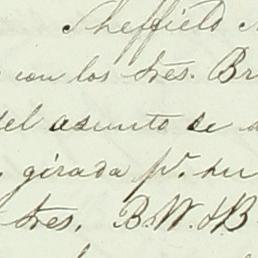 Sheffield
con los Sres. Br
del asunto de
girada pr. su
Sres. B. W. & B